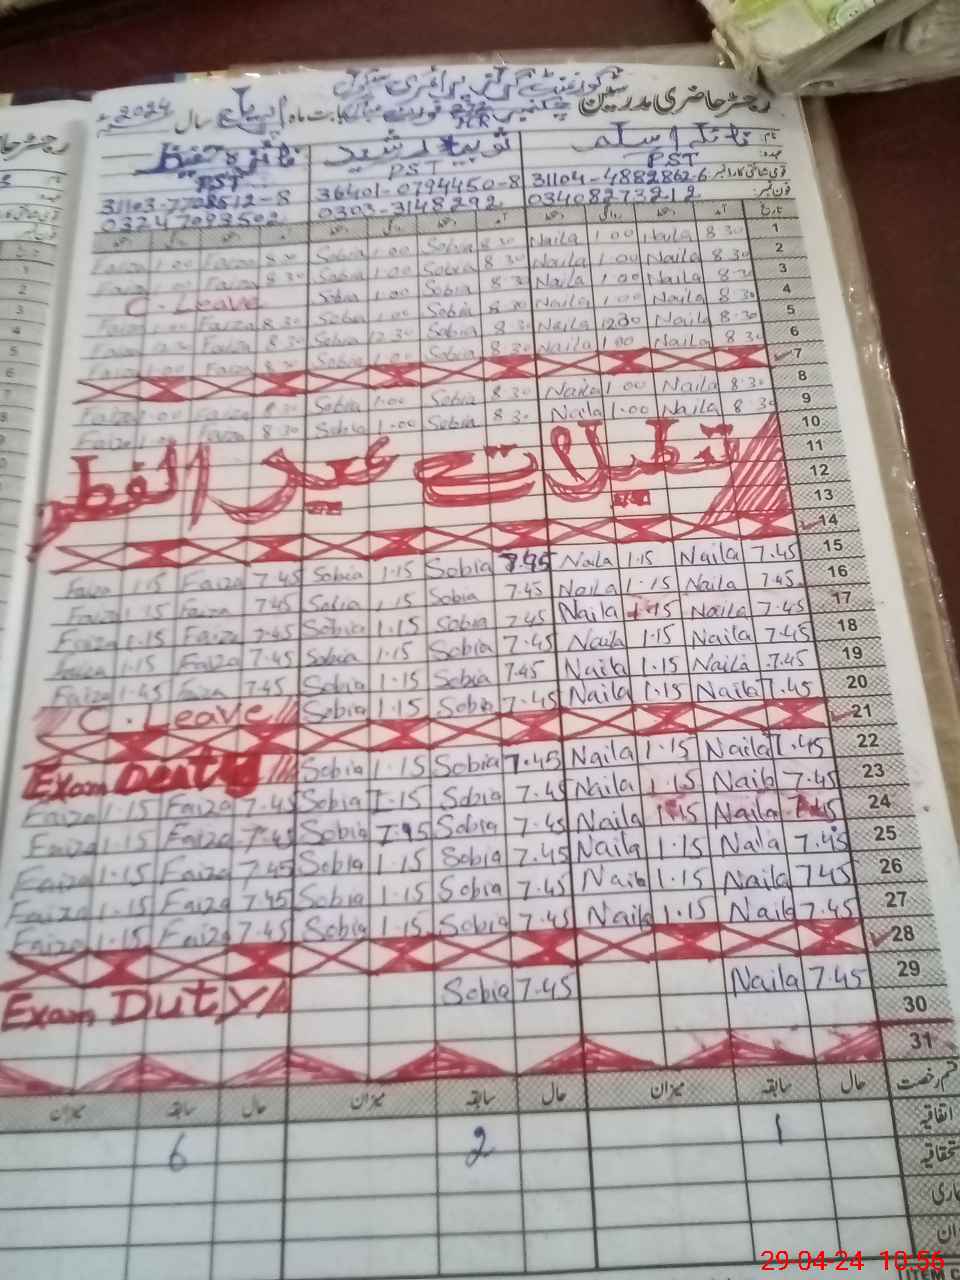 گورنمنٹ گرلز پرائمری سکول
رجسٹر حاضری مدرسین بابت ماہ اپریل سال 2024ء
نائلہ اسلم ثوبیہ رشید فائزہ حفیظ
PST PST PST
31104-4882862-6 36401-0794450-8 31103-7708512-8
03408273212 0303-3148292 03247093502
تاریخ
1 8.30 Naila 1.00 Naila 8.30 Sobia 1.00 Sobia 8.30 Faiza 1.00 Faiza
2 8.30 Naila 1.00 Naila 8.30 Sobia 1.00 Sobia 8.30 Faiza 1.00 Faiza
3 8.30 Naila 1.00 Naila 8.30 Sobia 1.00 Sobia C. Leave
4 8.30 Naila 1.00 Naila 8.30 Sobia 1.00 Sobia 8.30 Faiza 1.00 Faiza
5 8.30 Naila 12.30 Naila 8.30 Sobia 12.30 Sobia 8.30 Faiza 12.30 Faiza
6 8.30 Naila 1.00 Naila 8.30 Sobia 1.00 Sobia 8.30 Faiza 1.00 Faiza
7
8 8.30 Naila 1.00 Naila 8.30 Sobia 1.00 Sobia 8.30 Faiza 1.00 Faiza
9 8.30 Naila 1.00 Naila 8.30 Sobia 1.00 Sobia 8.30 Faiza 1.00 Faiza
10
11
تعطیلات عید الفطر
12
13
14
15 7.45 Naila 1.15 Naila 7.45 Sobia 1.15 Sobia 7.45 Faiza 1.15 Faiza
16 7.45 Naila 1.15 Naila 7.45 Sobia 1.15 Sobia 7.45 Faiza 1.15 Faiza
17 7.45 Naila 1.15 Naila 7.45 Sobia 1.15 Sobia 7.45 Faiza 1.15 Faiza
18 7.45 Naila 1.15 Naila 7.45 Sobia 1.15 Sobia 7.45 Faiza 1.15 Faiza
19 7.45 Naila 1.15 Naila 7.45 Sobia 1.15 Sobia 7.45 Faiza 1.45 Faiza
20 7.45 Naila 1.15 Naila 7.45 Sobia 1.15 Sobia C. Leave
21
22 7.45 Naila 1.15 Naila 7.45 Sobia 1.15 Sobia Exam Deuty
23 7.45 Naila 1.15 Naila 7.45 Sobia 1.15 Sobia 7.45 Faiza 1.15 Faiza
24 7.45 Naila 1.15 Naila 7.45 Sobia 7.45 Sobia 7.45 Faiza 1.15 Faiza
25 7.45 Naila 1.15 Naila 7.45 Sobia 1.15 Sobia 7.45 Faiza 1.15 Faiza
26 7.45 Naila 1.15 Naila 7.45 Sobia 1.15 Sobia 7.45 Faiza 1.15 Faiza
27 7.45 Naila 1.15 Naila 7.45 Sobia 1.15 Sobia 7.45 Faiza 1.15 Faiza
28
29 7.45 Naila 7.45 Sobia Exam DUTY
30
31
قسم رخصت حال سابقہ میزان حال سابقہ میزان حال سابقہ میزان
اتفاقیہ 1 2 6
29-04-24 10:56